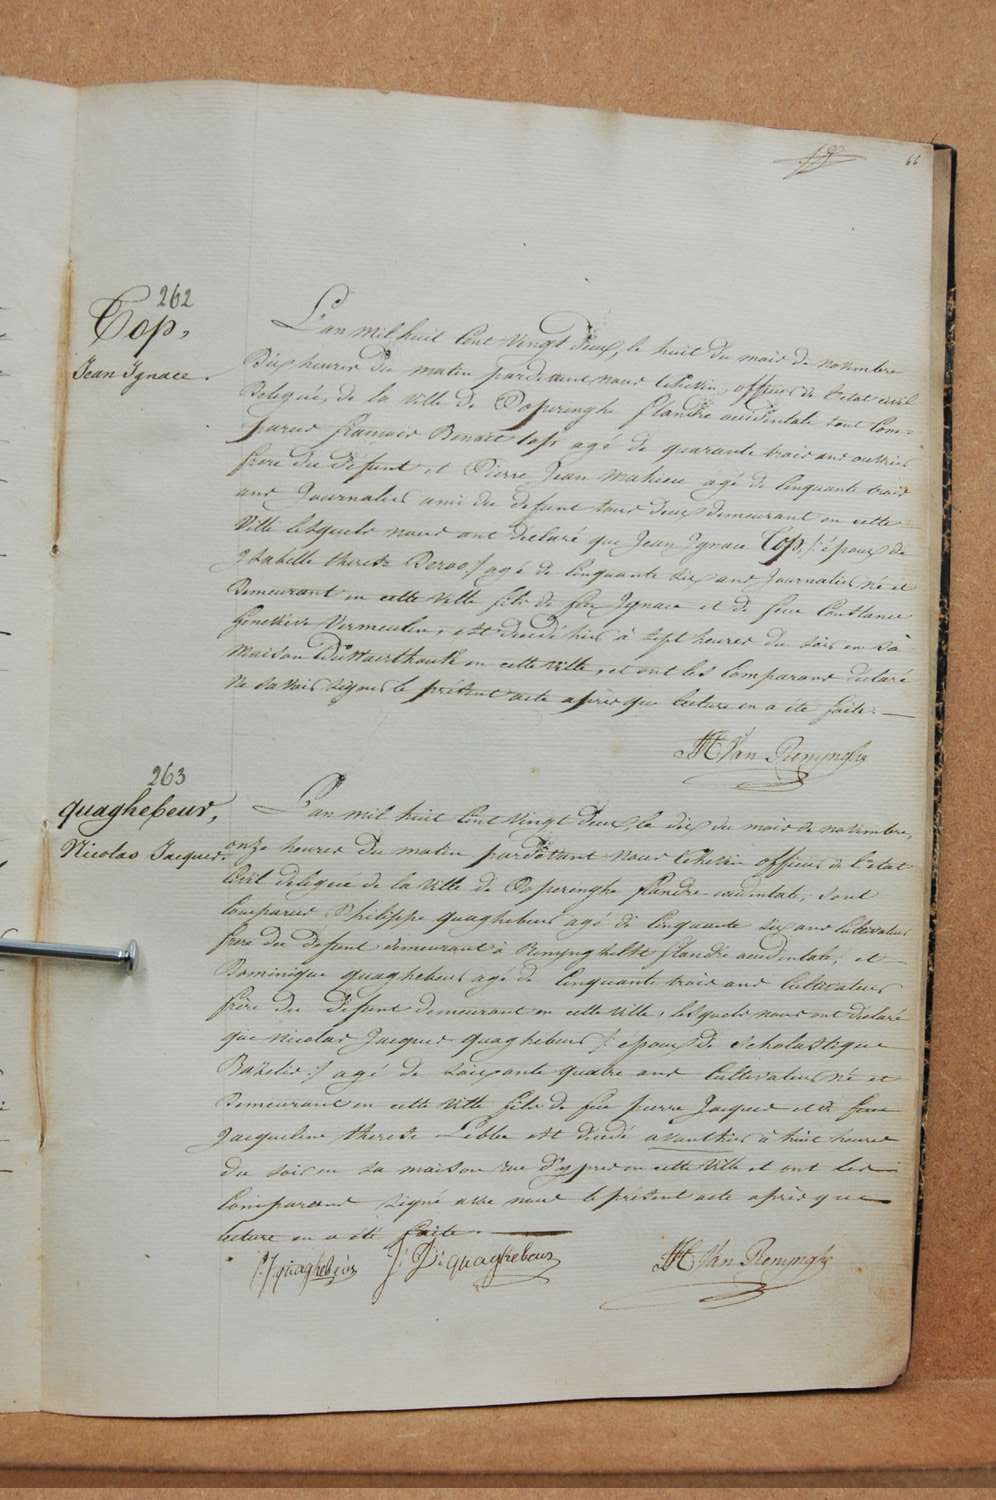 66
262
Top,
Jean Ignace.
L'an mil huit cent vingt deux, le huit du mois de novembre
Dix heures du matin pardevant nous Echevin, officier de l'etat civil
Delegué, de la ville de Poperinghe flandre occidentale sont Com=
parus francois Benoit top agé de quarante trois ans ouvrier
frere du defunt et Pierre Jean Mahieu agé de Cinquante trois
ans Journalier ami du defunt tous deux demeurant en cette
Ville lesquels nous ont déclaré que Jean Ignace Top /: époux de
Isabelle therese Deroo :/ agé de Cinquante six ans Journalier né et
Demeurant en cette Ville fils de feu Ignace et de feue Constance
Géneviève Vermeulen, est decédé hier à sept heures du soir en sa
Maison en cette Ville, et ont les Comparans déclaré
Ne savoir signer le présent acte après que lecture en a été faite. —
Van Renynghe
263
quaghebeur,
Nicolas Jacques.
L'an mil huit Cent Vingt Deux, le dix du mois de novembre,
onze heures du matin pardevant nous Echevin officier de l'etat
Civil delegué de la Ville de Poperinghe flandre occidentale, sont
Comparus Philippe quaghebeur agé de Cinquante six ans Cultivateur
frere du defunt demeurant à Renynghelst flandre occidentale, et
Dominique quaghebeur agé de Cinquante trois ans Cultivateur
frère du défunt demeurant en cette Ville, lesquels nous ont déclaré
que Nicolas Jacques quaghebeur /: epoux de Scholastique
Bazelis :/ agé de soixante quatre ans Cultivateur né et
Demeurant en cette Ville fils de feu pierre Jacques et de feue
Jacqueline therese Lebbe est decédé avanthier à huit heures
du soir en sa maison rue d'ypres en cette Ville et ont les
Comparans signé avec nous le présent acte après que
lecture en a été faite.
quaghebeur
quaghebeur
Van Renynghe